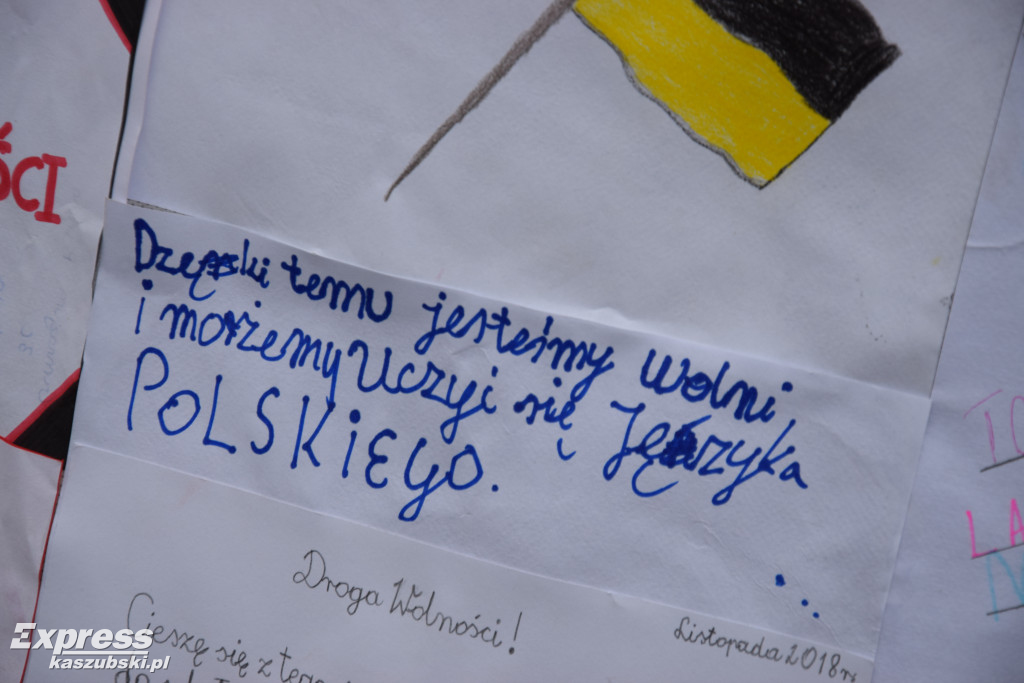 ŚCI
Dzęki temu jesteśmy wolni
i możemy Uczyi się Języka
POLSKiEgO.
...
Droga Wolności!
Listopada 2018r.
Cieszę się z tego
LA
Express
kaszubski.pl